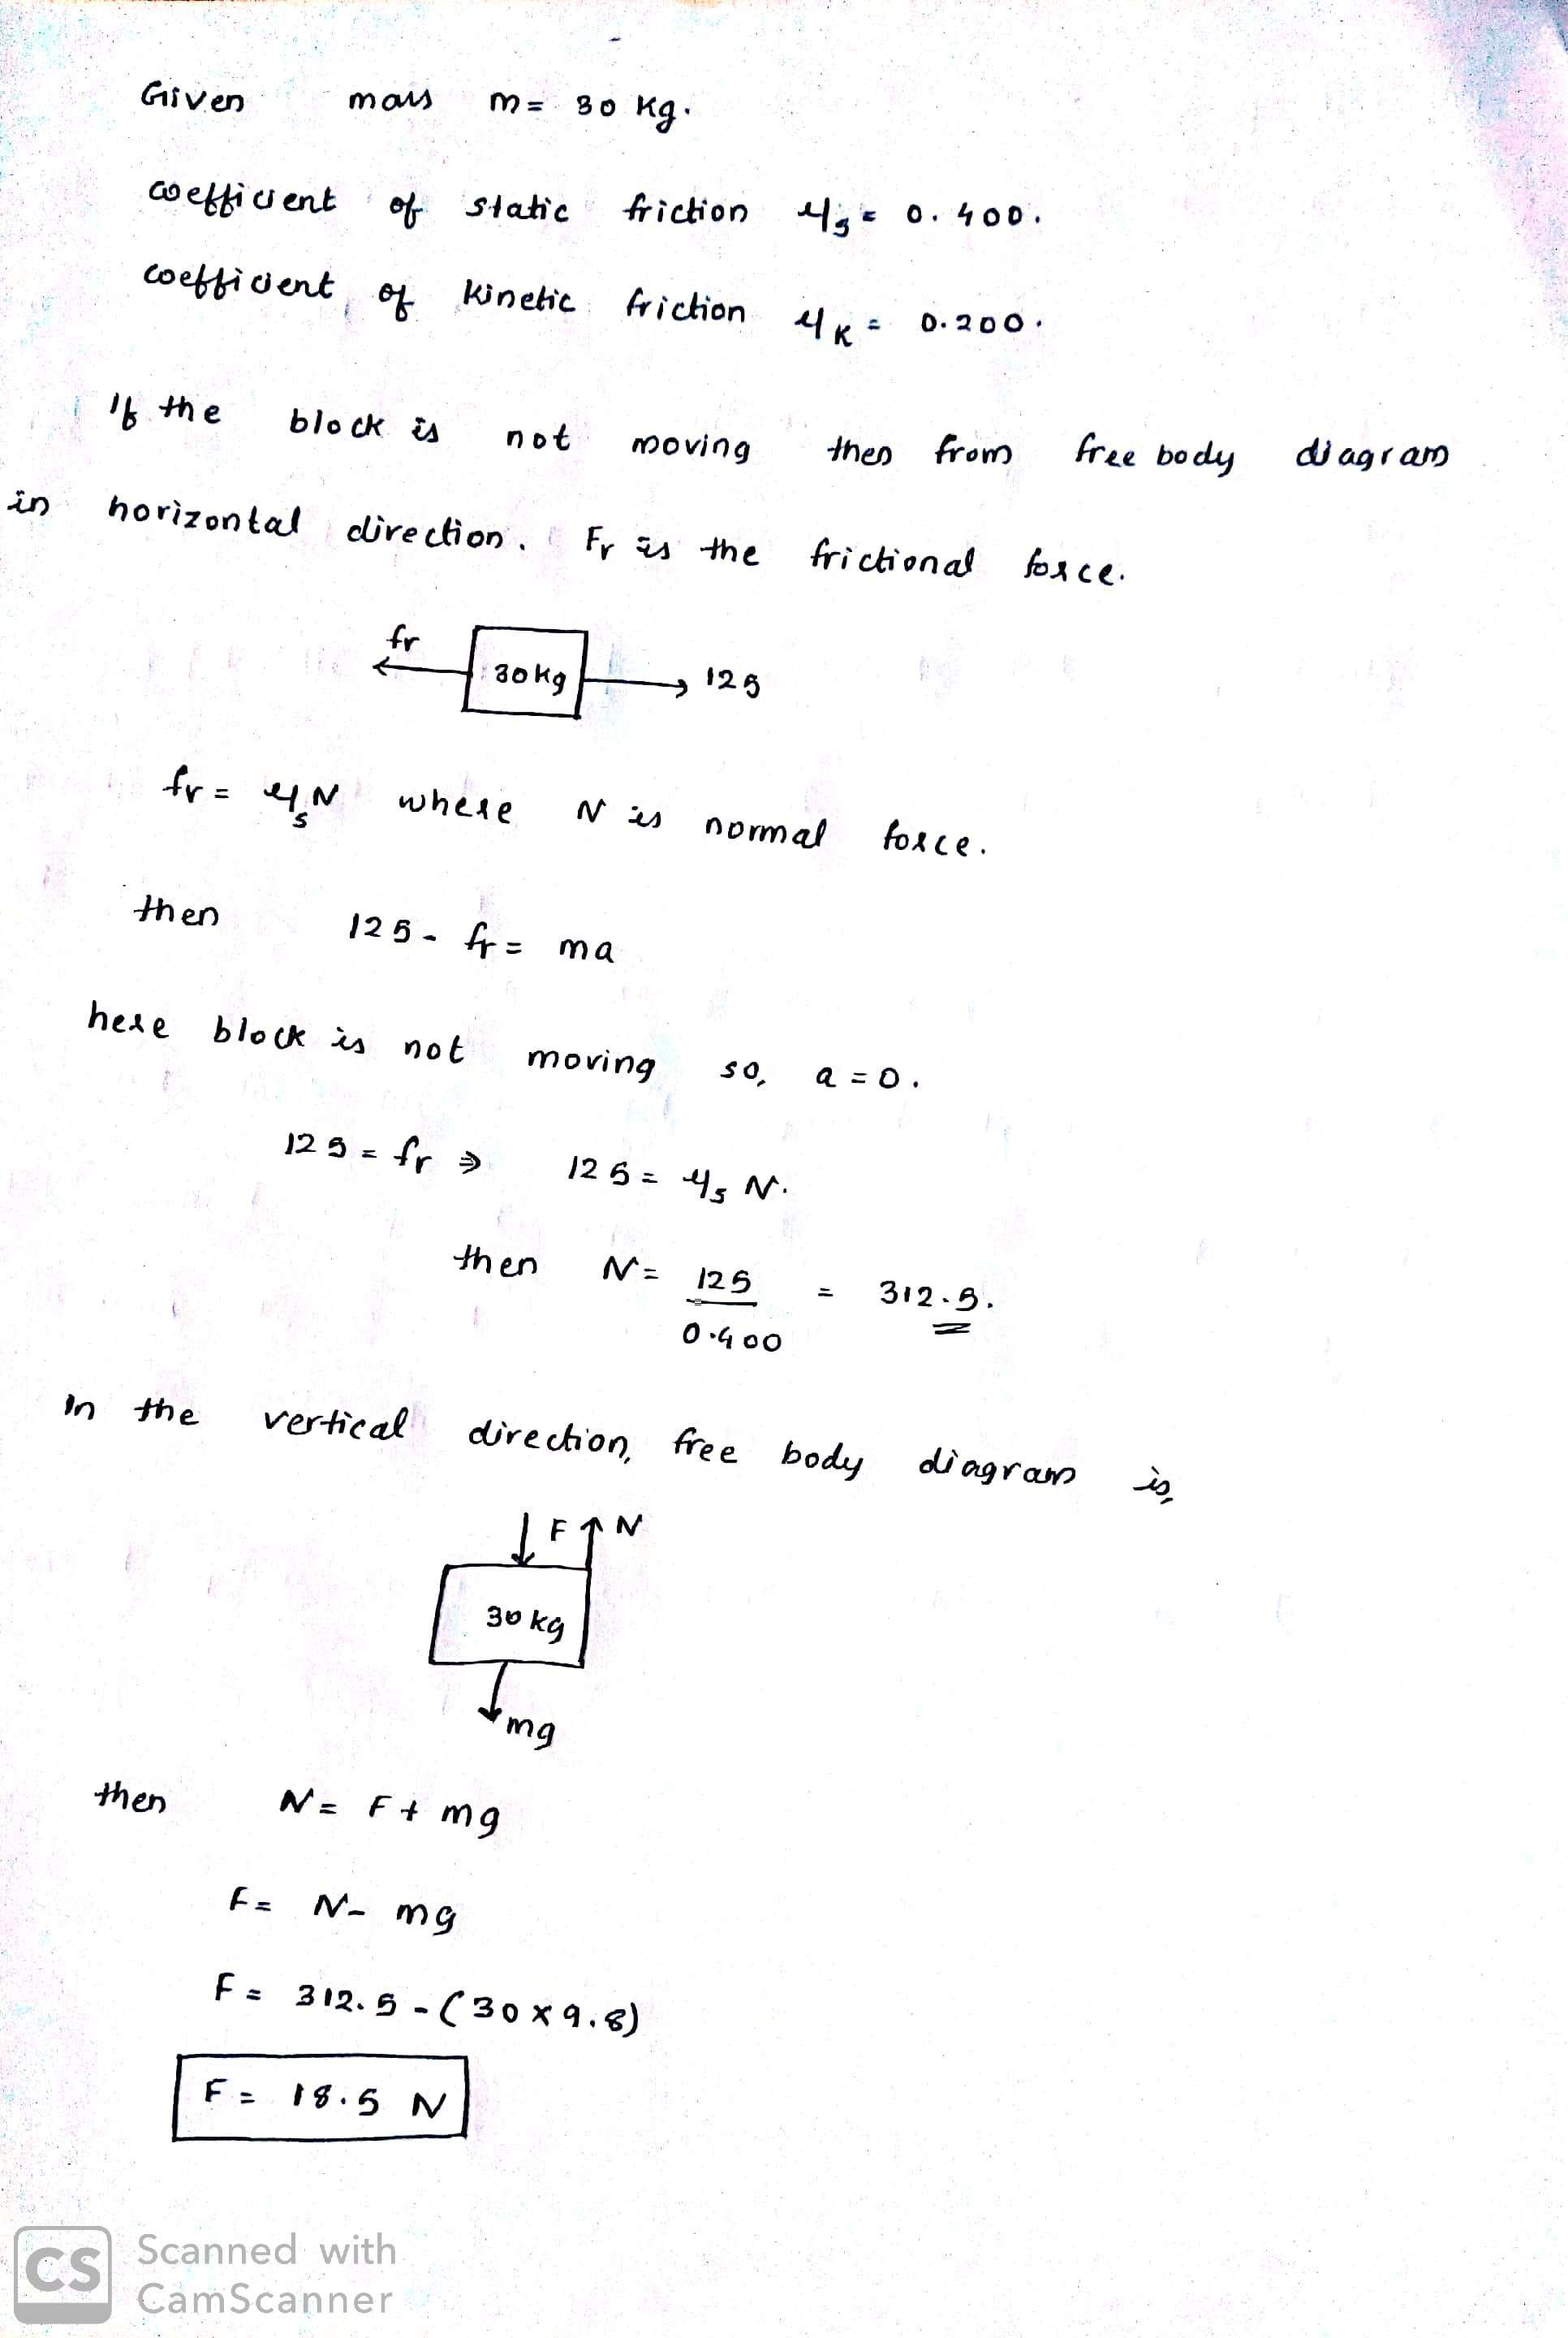 Given mass m = 30 kg.
coefficient of static friction μs = 0.400.
coefficient of kinetic friction μK = 0.200.
If the block is not moving then from free body diagram
in horizontal direction. Fr is the frictional force.
fr
30kg
125
fr = μsN where N is normal force.
then 125 - fr = ma
here block is not moving so, a = 0.
125 = fr ⇒ 125 = μs N.
then N = 125 = 312.5.
0.400
In the vertical direction, free body diagram is,
F N
30 kg
mg
then N = F + mg
F = N - mg
F = 312.5 - (30 × 9.8)
F = 18.5 N
CS Scanned with
CamScanner